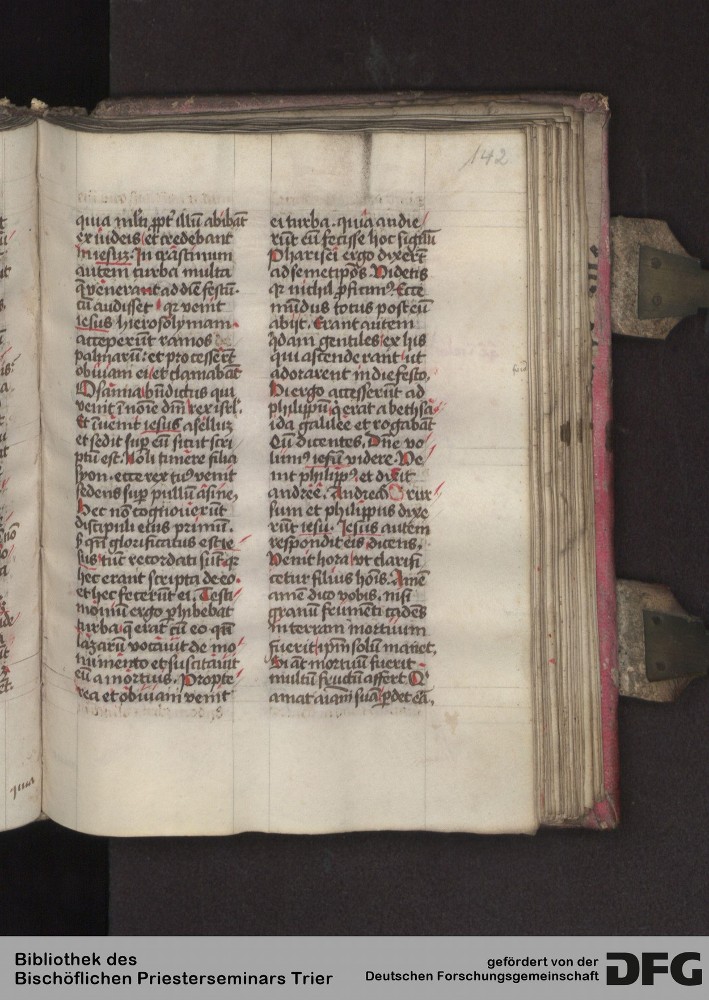 142
quia ml̄ti ꝓpt̉ illū abibāt
ex iudeis et credebant
in iesuꝫ. In crastinum
autem turba multa
q̄ venerant ad diē festū.
cū audisset qꝛ venit
iesus hierosolymam.
acceperūt ramos
palmarū: et processerūt
obuiam ei et clamabāt
Osanna bn̄dictus qui
venit ī noīe dn̄i rex isrl̄.
Et īuenit iesus aselluꝫ
et sedit sup̄ eū sicut scri
ptū est. Noli timere filia
syon. ecce rex tuꝰ venit
sedens sup̄ pullū asine,
Hec nō cognouerūt
discipuli eius primū.
ꝫ qn̄ glorificatus est ie
sus tūc recordati sūt qꝛ
hec erant scripta de eo.
et hec fecerūt ei. Testi
moniū ergo ꝑhibebat
turba q̄ erat cū eo qn̄
lazarū vocauit de mo
numento et suscitauit
eū a mortuis. Propte
rea et obuiam venit
ei turba. quia audie
rūt eū fecisse hoc signū
Pharisei ergo dixerūt
ad semetip̄os. Videtis
qꝛ nichil ꝓficimꝰ. Ecce
mūdus totus post eū
abijt. Erant autem
q̄dam gentiles ex his
qui ascenderant ut
adorarent in die festo.
Hi ergo accesserūt ad
philippū q̄ erat a bethsa
ida galilee et rogabāt
eū dicentes. Dn̄e vo
lumꝰ iesū videre. Ve
nit philippꝰ et dicit
andree. Andreas rur
sum et philippus dixe
rūt iesu. Iesus autem
respondit eis dicens.
Venit hora vt clarifi
cetur filius hoīs. Amē
amē dico vobis. nisi
granū frumenti cadēs
in terram mortuum
fuerit ip̄m solū manet.
Si aūt mortuū fuerit
multū fructū affert Q
amat aīam suā ꝑdet eā.
Bibliothek des
Bischöflichen Priesterseminars Trier
gefördert von der
Deutschen Forschungsgemeinschaft
DFG